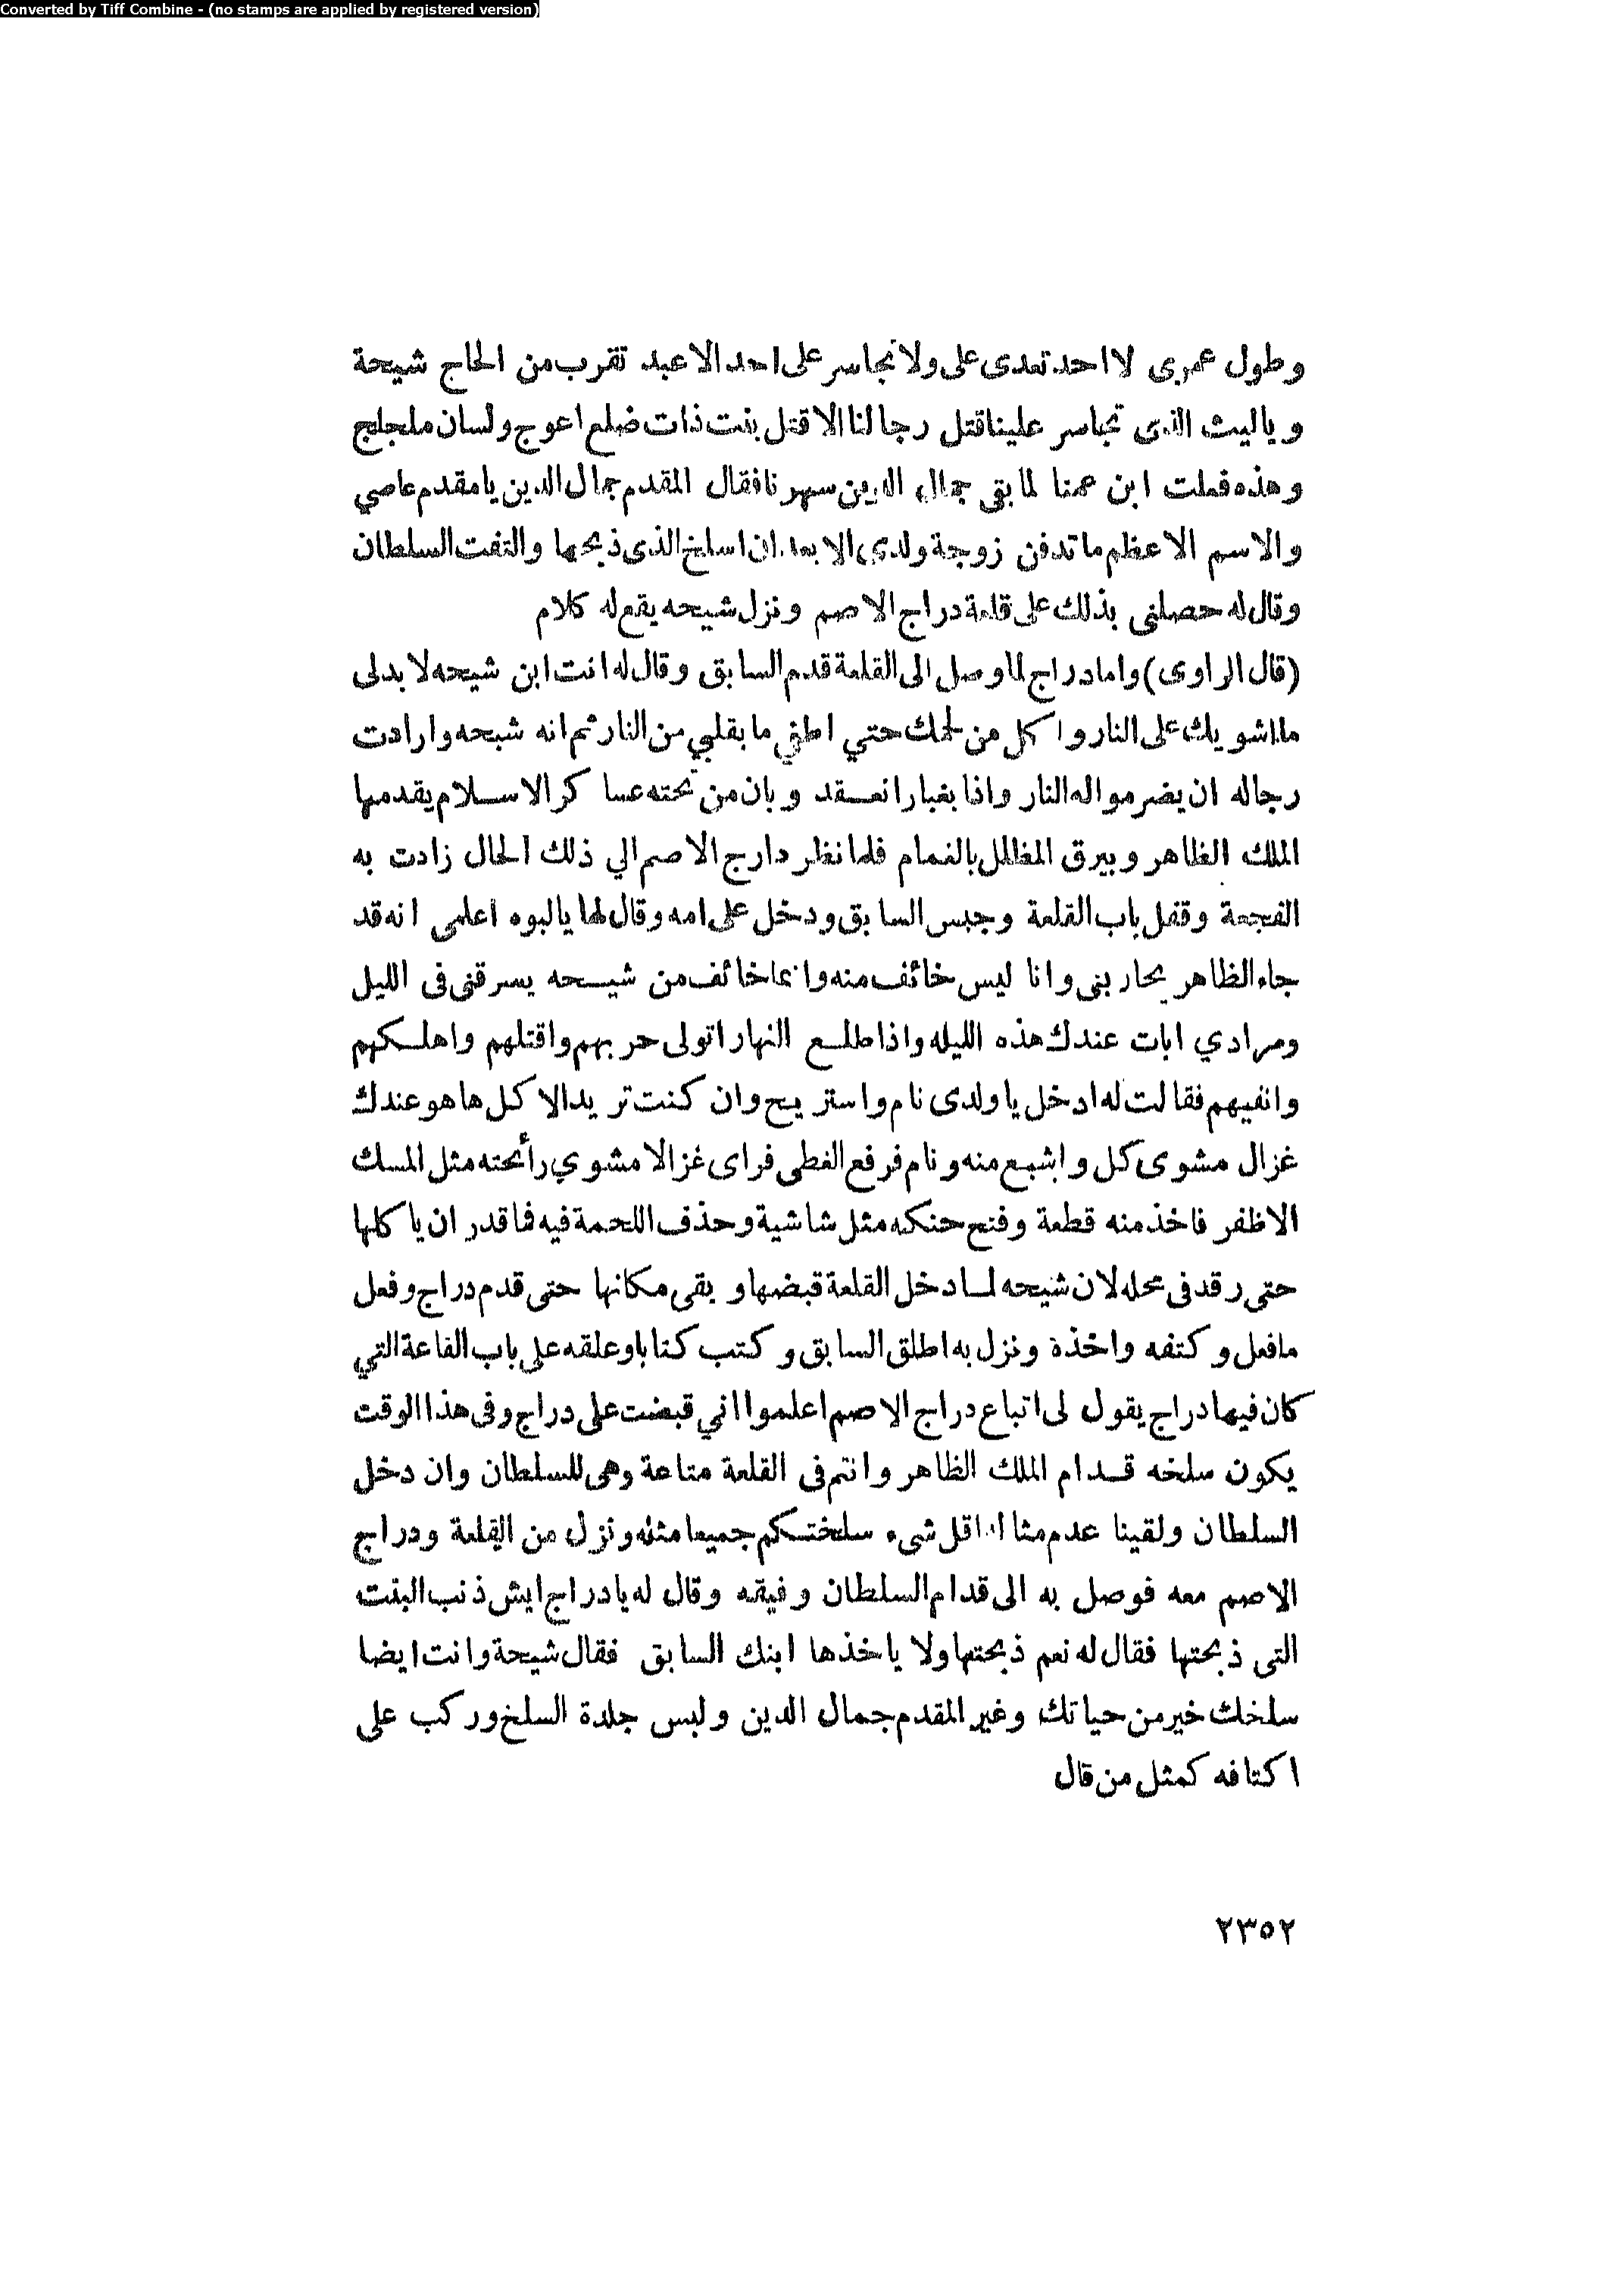 Converted by Tiff Combine - (no stamps are applied by registered version)
وطول عمرى لا احد تعدى على ولا تجاسر على احد الا عبد تقرب من الحاج شيحة
وياليث الذى تجاسر علينا قتل رجالنا الا قتل بنت ذات ضلع اعوج ولسان ملجلج
وهذه فعلت ابن عمنا لما بقى جمال الدين سهرنا فقال المقدم جمال الدين يا مقدم عاصي
والاسم الاعظم ما تدفن زوجة ولدى الا بعد ان اسلخ الذى ذبحها والتفت السلطان
وقال له حصلنى بذلك على قلعة دراج الاصم ونزل شيحه يقع له كلام
(قال الراوى) واما دراج لما وصل الى القلعة قدم السابق وقال له انت ابن شيحه لا بد لى
ما اشويك على النار واكل من لحمك حتي اطفي ما بقلبي من النار ثم انه شبحه وارادت
رجاله ان يضرموا له النار واذا بغبار انعقد وبان من تحته عساكر الاسلام يقدمها
الملك الظاهر وبيرق المظلل بالغمام فلما نظر دارج الاصم الي ذلك الحال زادت به
الفجعة وقفل باب القلعة وحبس السابق ودخل على امه وقال لها يا لبوه اعلمى انه قد
جاء الظاهر يحاربنى وانا ليس خائف منه وانما خائف من شيحه يسرقنى فى الليل
ومرادي ابات عندك هذه الليله واذا طلع النهار اتولى حربهم واقتلهم واهلكهم
وانفيهم فقالت له ادخل يا ولدى نام واستريح وان كنت تريد الاكل ها هو عندك
غزال مشوى كل واشبع منه ونام فرفع الغطى فراى غزالا مشوي رأئحته مثل المسك
الاظفر فاخذ منه قطعة وفتح حنكه مثل شاشية وحذف اللحمة فيه فما قدر ان ياكلها
حتى رقد فى محله لان شيحه لما دخل القلعة قبضها وبقى مكانها حتى قدم دراج وفعل
ما فعل وكتفه واخذه ونزل به اطلق السابق وكتب كتابا وعلقه على باب القاعة التي
كان فيها دراج يقول لى اتباع دراج الاصم اعلموا اني قبضت على دراج وفى هذا الوقت
يكون سلخه قدام الملك الظاهر وانتم فى القلعة متاعة وهى للسلطان وان دخل
السلطان ولقينا عدم مثال اقل شىء سلختكم جميعا مثله ونزل من القلعة ودراج
الاصم معه فوصل به الى قدام السلطان وفيقه وقال له يا دراج ايش ذنب البنت
التى ذبحتها فقال له نعم ذبحتها ولا ياخذها ابنك السابق فقال شيحة وانت ايضا
سلخك خير من حياتك وغير المقدم جمال الدين ولبس جلدة السلخ وركب على
اكتافه كمثل من قال
٢٣٥٢